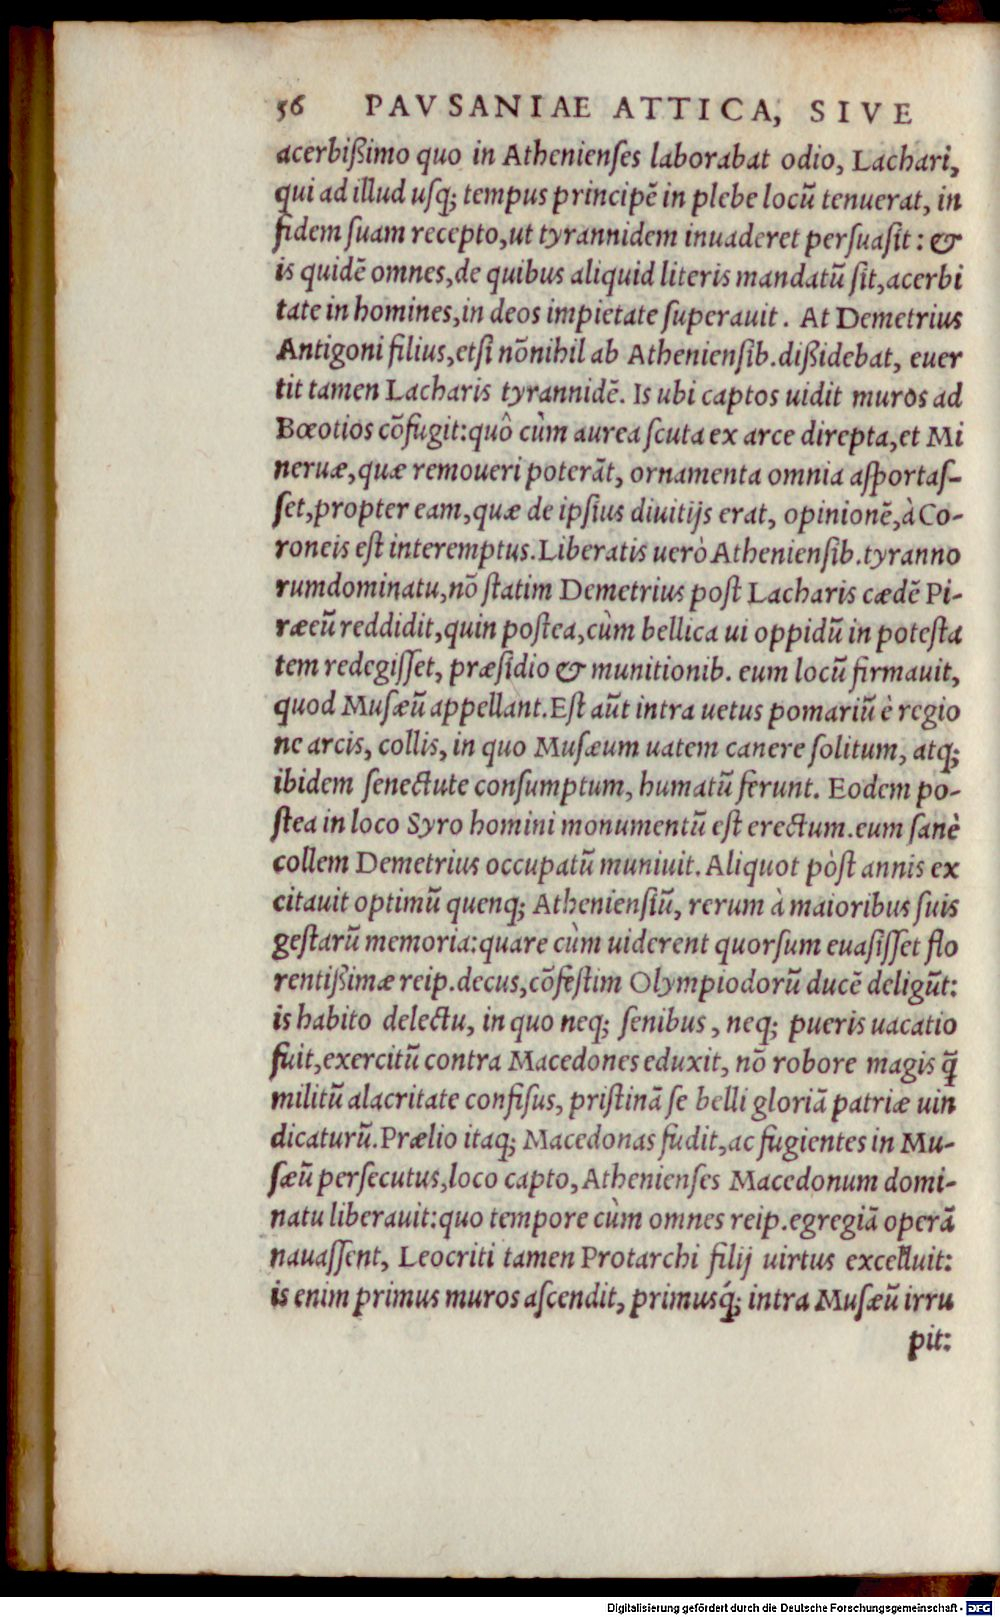 56 PAVSANIAE ATTICA, SIVE
acerbißimo quo in Athenienses laborabat odio, Lachari,
qui ad illud usq; tempus principẽ in plebe locũ tenuerat, in
fidem suam recepto, ut tyrannidem inuaderet persuasit: &
is quidẽ omnes, de quibus aliquid literis mandatũ sit, acerbi
tate in homines, in deos impietate superauit. At Demetrius
Antigoni filius, etsi nõnihil ab Atheniensib. dißidebat, euer
tit tamen Lacharis tyrannidẽ. Is ubi captos uidit muros ad
Bœotios cõfugit: quô cùm aurea scuta ex arce direpta, et Mi
neruæ, quæ remoueri poterãt, ornamenta omnia asportas-
set, propter eam, quæ de ipsius diuitijs erat, opinionẽ, à Co-
roneis est interemptus. Liberatis uerò Atheniensib. tyranno
rum dominatu, nõ statim Demetrius post Lacharis cædẽ Pi-
ræeũ reddidit, quin postea, cùm bellica ui oppidũ in potesta
tem redegisset, præsidio & munitionib. eum locũ firmauit,
quod Musæũ appellant. Est aũt intra uetus pomariũ è regio
ne arcis, collis, in quo Musæum uatem canere solitum, atq;
ibidem senectute consumptum, humatũ ferunt. Eodem po-
stea in loco Syro homini monumentũ est erectum. eum sanè
collem Demetrius occupatũ muniuit. Aliquot pòst annis ex
citauit optimũ quenq; Atheniensiũ, rerum à maioribus suis
gestarũ memoria: quare cùm uiderent quorsum euasisset flo
rentißimæ reip. decus, cõfestim Olympiodorũ ducẽ deligũt:
is habito delectu, in quo neq; senibus, neq; pueris uacatio
fuit, exercitũ contra Macedones eduxit, nõ robore magis q̃
militũ alacritate confisus, pristinã se belli gloriã patriæ uin
dicaturũ. Prælio itaq; Macedonas fudit, ac fugientes in Mu-
sæũ persecutus, loco capto, Athenienses Macedonum domi-
natu liberauit: quo tempore cùm omnes reip. egregiã operã
nauassent, Leocriti tamen Protarchi filij uirtus excelluit:
is enim primus muros ascendit, primusq́; intra Musæũ irru
pit:
Digitalisierung gefördert durch die Deutsche Forschungsgemeinschaft - DFG